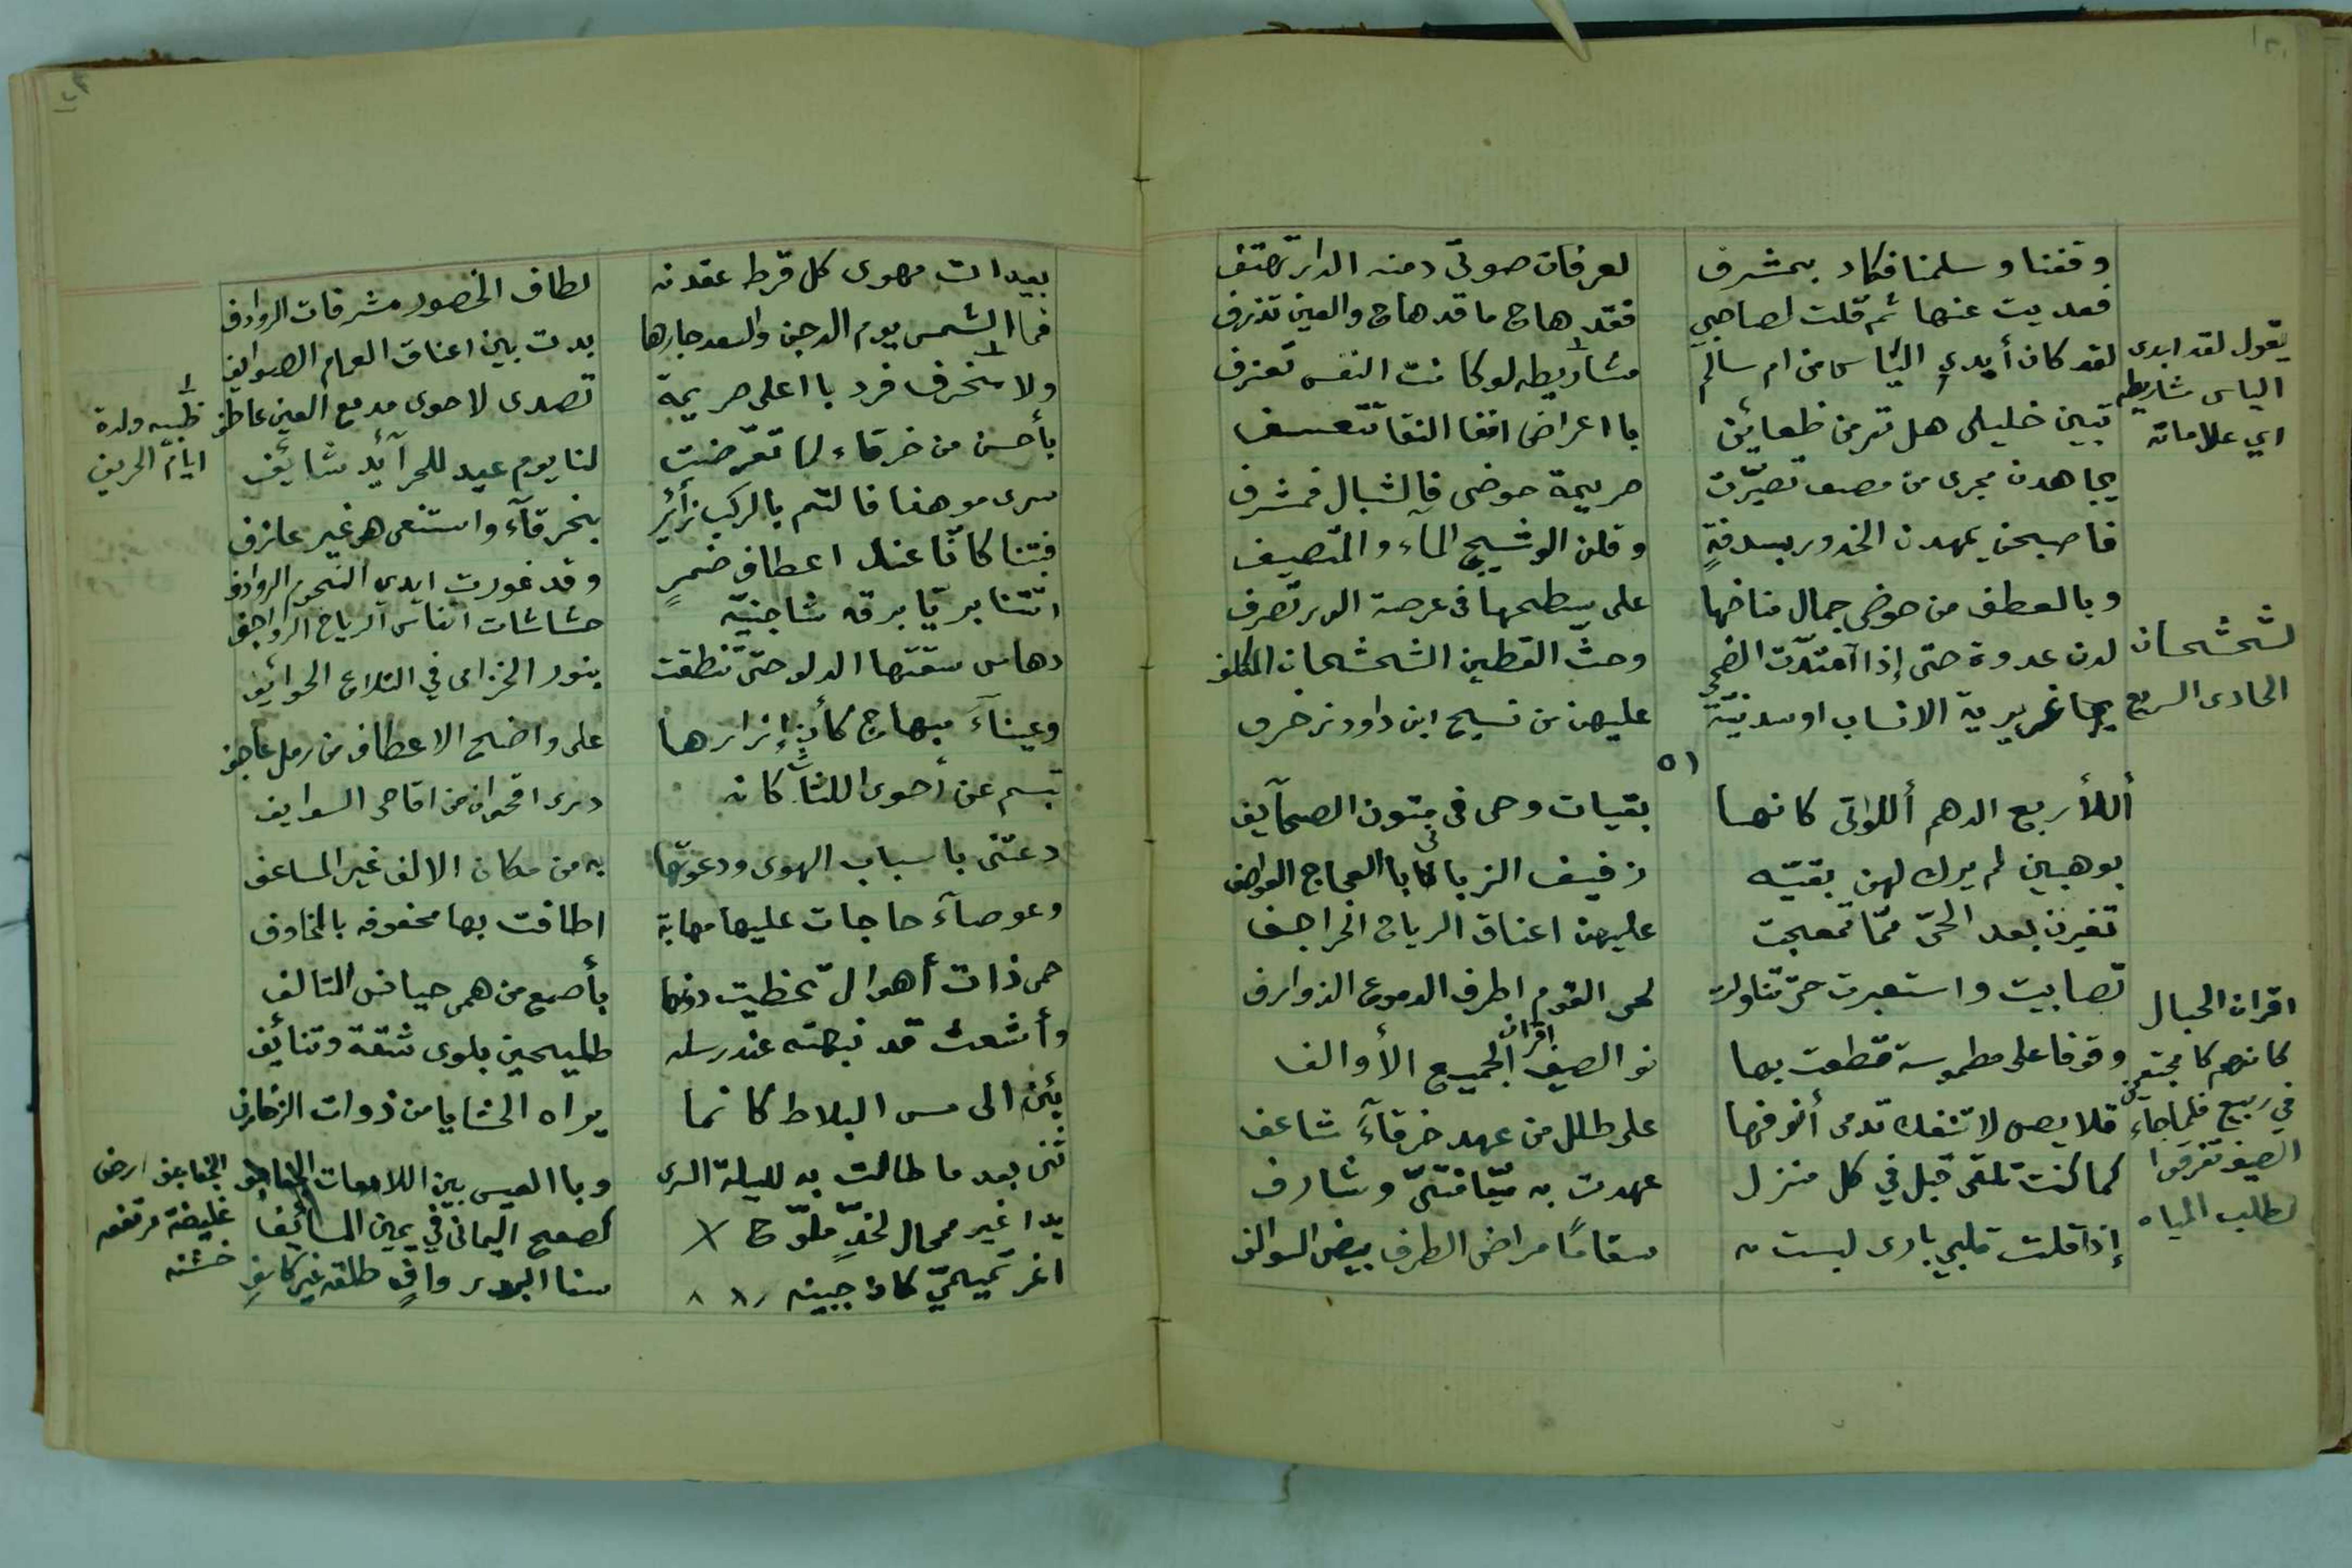 وقفنا وسلمنا فكاد بمشرف لعرفان صوتي دمنه الدار تهتف
فعديت عنها ثم قلت لصاحبي فقد هاج ما قد هاج والعين تذرف
لقد كان أيدي الياس من ام سالم مشاريطه لو كانت النفس تعزف
تبين خليلى هل ترى من ظعاين با اعراض انقا النقا تتعسف
يجاهدن مجرى من مصيف تصيرت صريمة حوضى فالشبال فمشرف
فاصبحن يمهدن الخدور بسدفةٍ وقلن الوشيج المآء والمتصيف
وبالعطف من حوضى جمال مناخها على بسطحها فى عرصة الدار تصرف
لدن غدوة حتى إذا آمتدّت الضحى وحث القطين الشحشحان المكلف
بها غريرية الانساب اوسدنيّة عليهن من نسيج ابن داود زخرف
٥١
أللأربع الدهم أللواتى كانها بقيات وحى فى متون الصحآيف
بوهبين لم يترك لهن بقيّه زفيف الزبانى بالعجاج العواصف
تغيرن بعد الحىّ ممّا تمعجت عليهن اعناق الرياح الحراجف
تصابيت واستعبرت حتى تناولت لحى القوم اطرف الدموع الذوارف
وقوفا على مطموسة قطعت بها نو الصيف اقران الجميع الأوالف
قلايص لا تنفك تدمى أنوفها على طلل من عهد خرقآء شاعف
كما كنت تلقى قبل في كل منزل عهدت به ميّا فتىّ وشارف
إذا قلت قلبي بارى لبست به سقامًا مراض الطرف بيض السوالف
يقول لقد ابدى
الياس شاريطه
اي علاماته
لشحشحان
الحادى السريع
اقران الحبال
كانهم كا مجتمعين
في ربيع فلما جاء
الصيف تفرقوا
لطلب المياه
بعيدات مهوى كل قرط عقدنه لطاف الخصور مشرفات الروادف
فما الشمس يوم الدجن والسعد جارها بدت بين اعناق الغمام الصوايف
ولا مخرف فرد با اعلى صريمة تصدى لاحوى مدمع العين عاطف
بأحسن من خرقاء لما تعرّضت لنا يوم عيد للحرآئد شائف
سرى موهنا فالتم بالركب زائر بخرقآء واستنعى هو غير عازف
فبتنا كانّا عند اعطاف ضمرٍ وقد غورت ايدي النجوم الروادف
اتتنا بريّا برقه شاجنيّه حشاشات انفاس الرياح الرواجف
دهاس سقتها الدلو حتى تنطقت بنور الخزامى في التلاع الحوائف
وعيناءَ مبهاج كأن إزارها على واضح الاعطاف من رمل عاجف
تبسم عن أحوى اللثاّت كانه ذرى اقحوان من اقاحى السوايف
دعتنى باسباب الهوى ودعوتها به من مكان الالف غير المساعف
وعوصآء حاجات عليها مهابة اطافت بها محفوفه بالمخاوف
حمى ذات أهوال تخطيت دونها بأصمع من همى حياض المتالف
وأشعث قد نبهته عند رسله طليحين بلوى شقة وتنائف
يئن الى مس البلاط كانما يراه الحشايا من ذوات الزخارف
ثنى بعد ما طالت به لليلة السرى وبا العيس بين اللامعات الجفاجف
يدا غير ممحال لخدٍّ ملوّح كصفح اليمانى في يمين المسائف
اغر تميميّ كان جبينه سنا البدر وافٍ طلقه غير كاسفِ
ظبيه ولدة
ايام الحريف
الجفاجف ارض
غليضة مرتفعه
خشنه